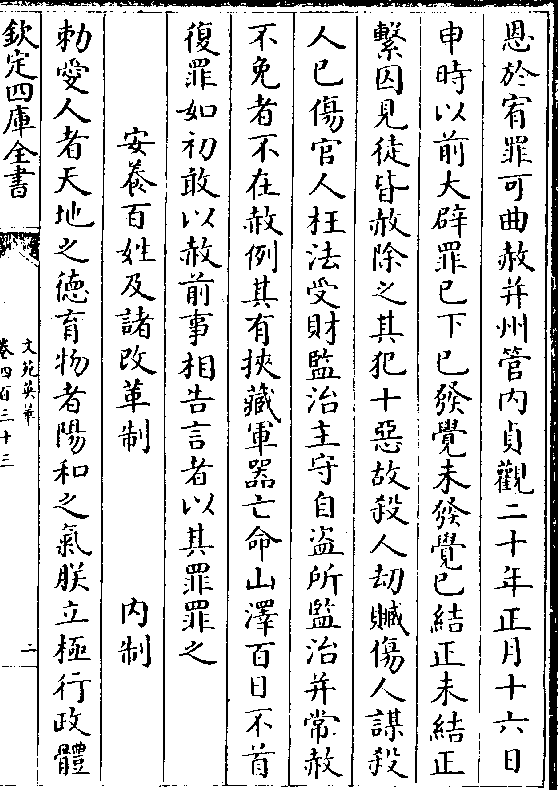 恩於宥罪可曲赦并州管内貞觀二十年正月十六日
申時以前大辟罪已下已發覺未發覺已結正未結正
繫囚見徒皆赦除之其犯十惡故殺人劫贓傷人謀殺
人已傷官人枉法受財監治主守自盜所監治并常赦
不免者不在赦例其有挾藏軍器亡命山澤百日不首
復罪如初敢以赦前事相告言者以其罪罪之
安養百姓及諸改革制 内制
勅愛人者天地之德育物者陽和之氣朕立極行政體
欽定四庫全書
文苑英華
卷四百三十三
二